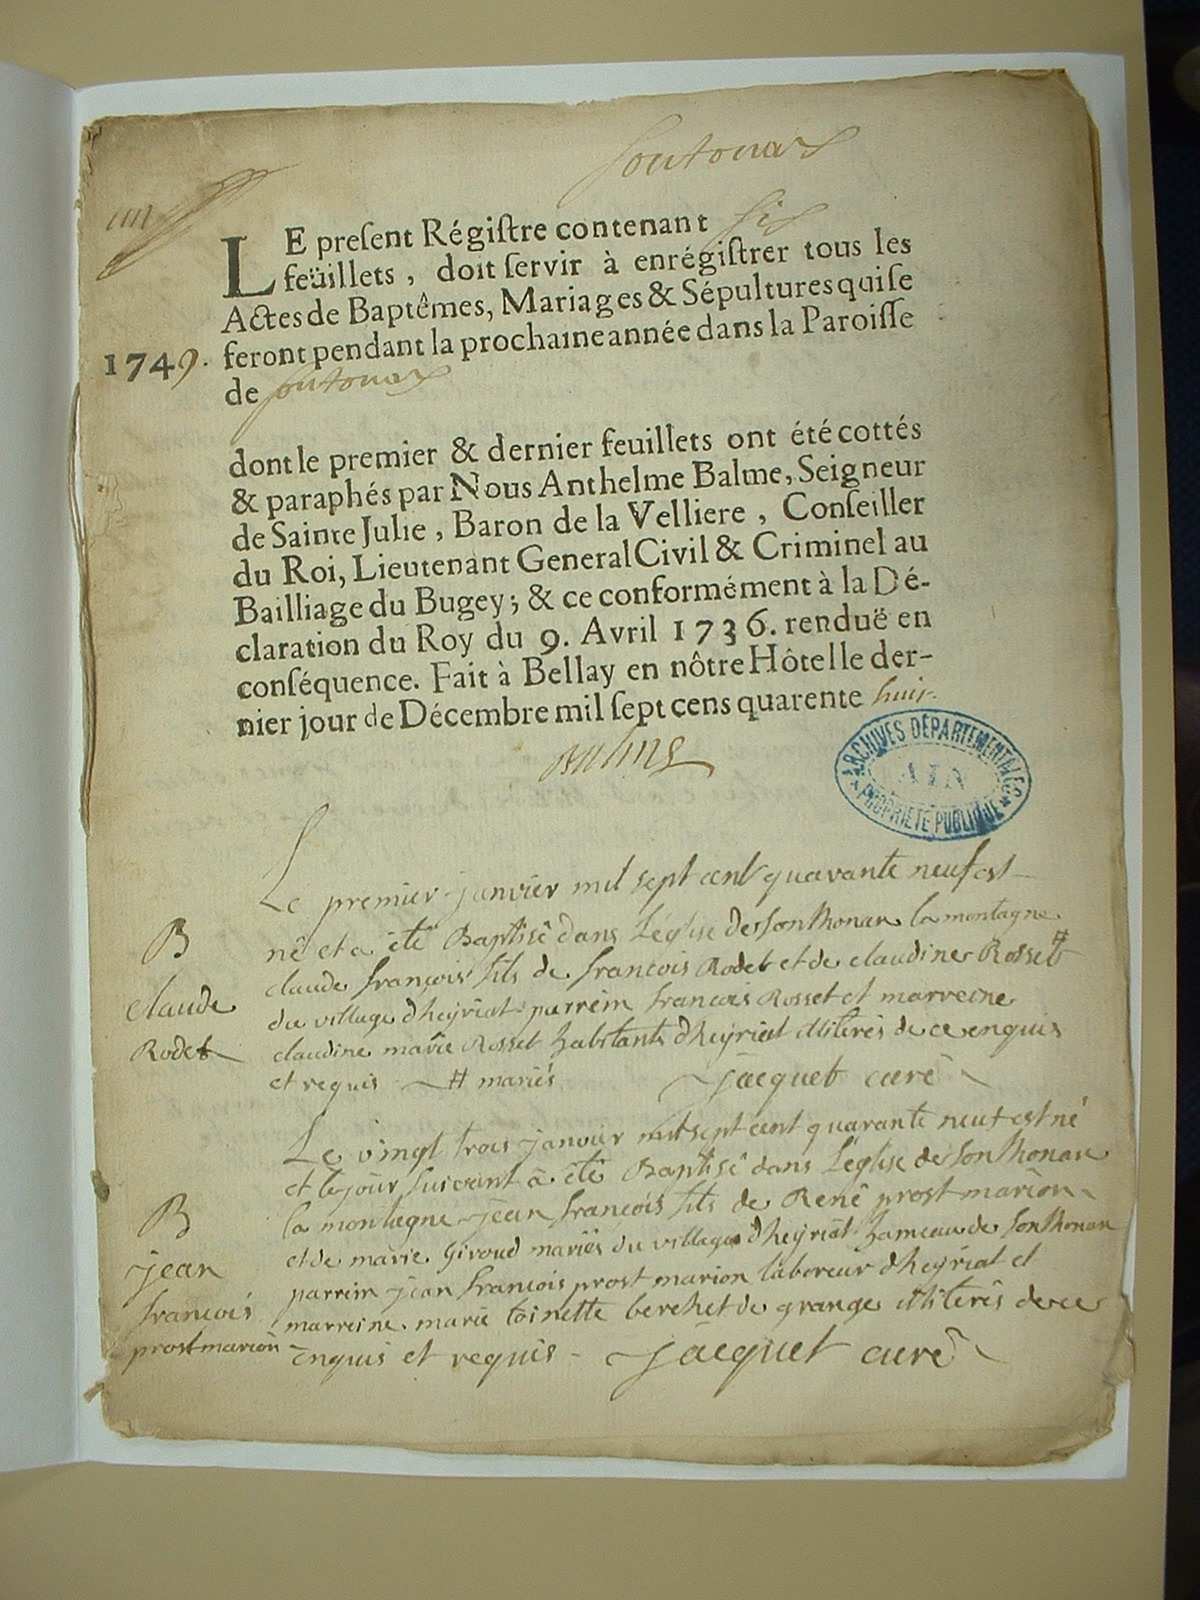 Soutonax
LE preſent Régiſtre contenant six
feüillets, doit ſervir à enrégiſtrer tous les
Actes de Baptêmes, Mariages & Sépultures qui ſe
1749. feront pendant la prochaine année dans la Paroiſſe
de Soutonax
dont le premier & dernier feuillets ont été cottés
& paraphés par Nous Anthelme Balme, Seigneur
de Sainte Julie, Baron de la Velliere, Conſeiller
du Roi, Lieutenant General Civil & Criminel au
Bailliage du Bugey; & ce conformément à la Dé-
claration du Roy du 9. Avril 1736. renduë en
conſéquence. Fait à Bellay en nôtre Hôtel le der-
nier jour de Décembre mil ſept cens quarente huit.
Balme
ARCHIVES DÉPARTEMENTALES
AIN
PROPRIÉTÉ PUBLIQUE
Le premier janvier mil sept cent quarante neuf est
né et a été Baptisé dans L'église de sonthonax la montagne
claude françois fils de francois Rodet et de claudine Rosset #
du village d'heyriat parrein francois Rosset et marreine
claudine marie Rosset habitants d'heyriat illiterés de ce enquis
et requis # mariés Jacquet curé
B
claude
Rodet
Le vingt trois janvier mil sept cent quarante neuf est né
et le jour suivant a été Baptisé dans L'église de sonthonax
la montagne jean françois fils de René prost marion
et de marie Giroud mariés du village d'heyriat hameau de sonthonax
parrein jean francois prost marion laboreur d'heyriat et
marreine marie toinette berchet de grange illiterés de ce
enquis et requis - Jacquet curé
B
jean
françois
prost marion